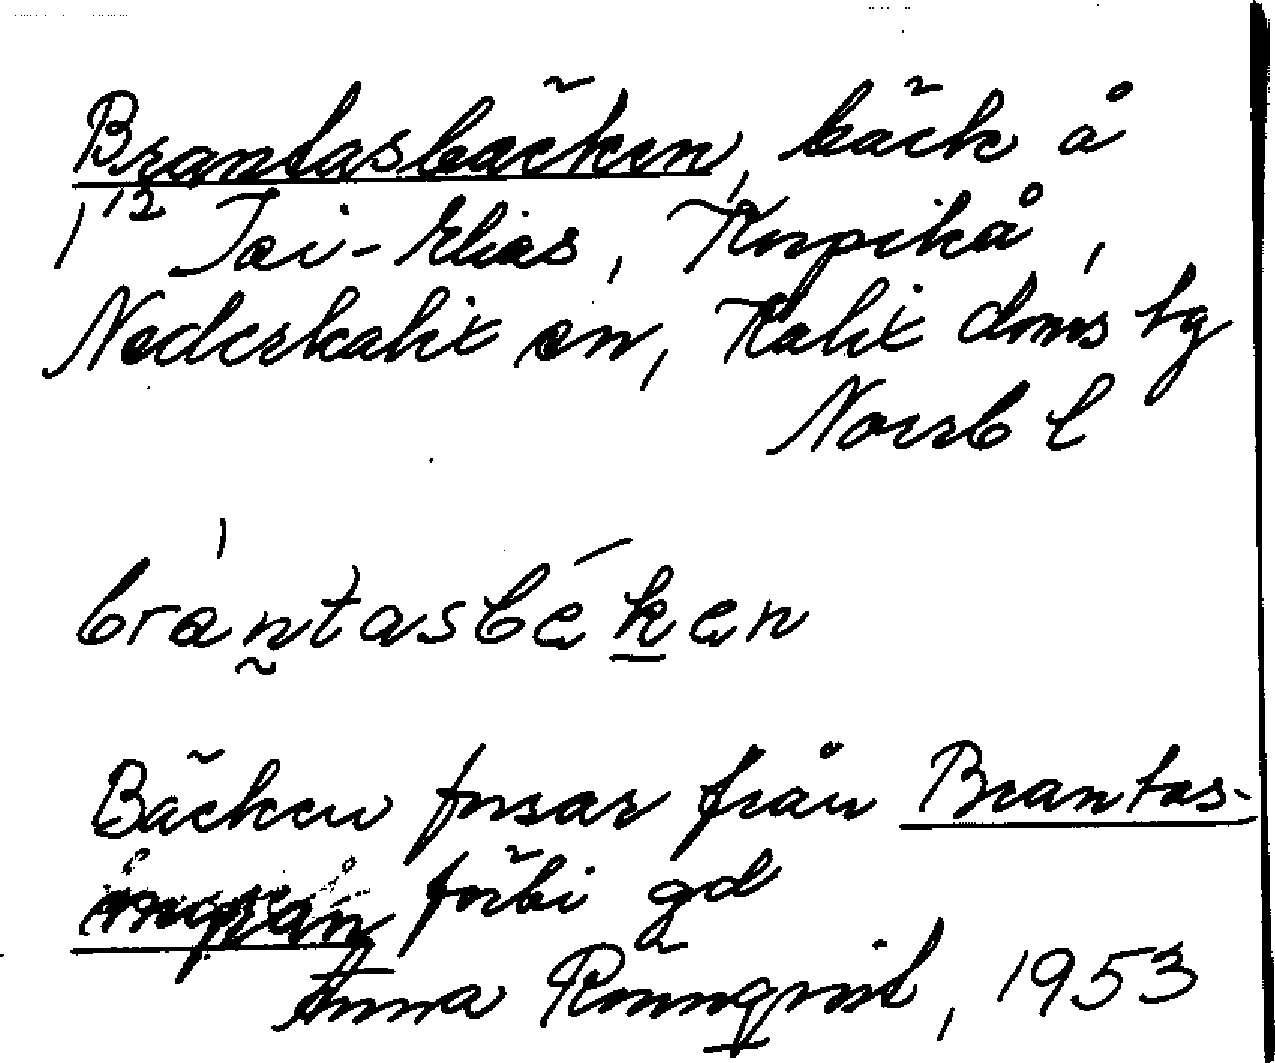 Brantasbäcken, bäck å
1¹² Joi-Elias, Korpikå,
Nederkalix sn, Kalix doms tg
Norrb l
brantasbeken
Bäcken forsar från Brantas-
förbi gd
Anna Rönnqvist, 1953